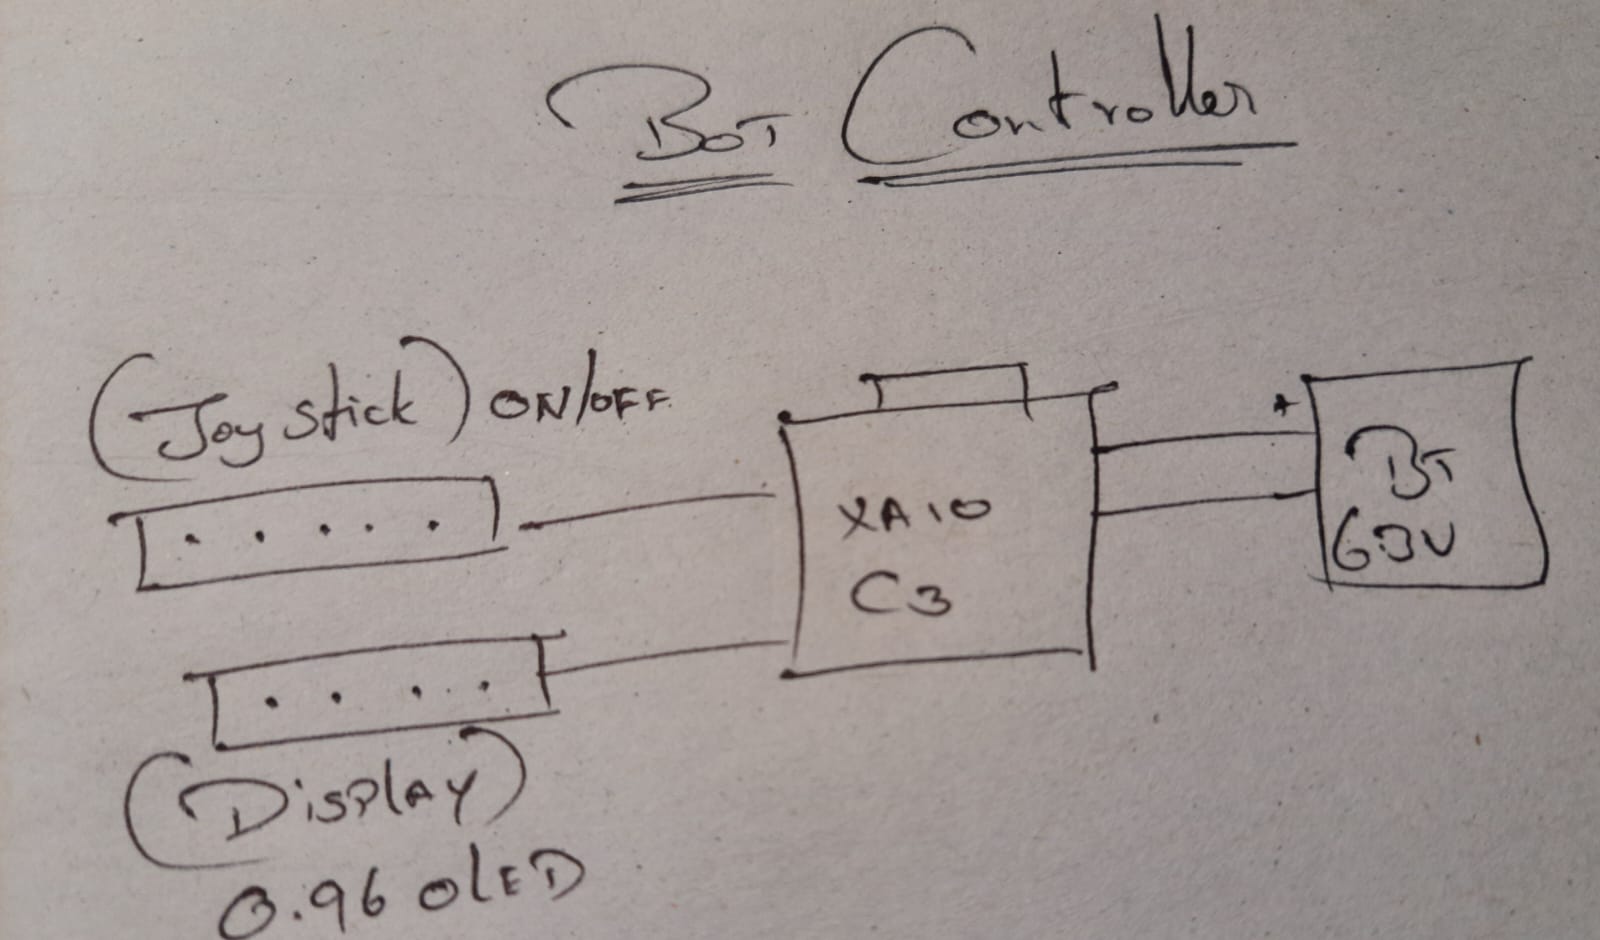 BOT Controller
(Joystick) ON/OFF
XAIO
C3
+
BT
6.3V
(Display)
0.96 OLED